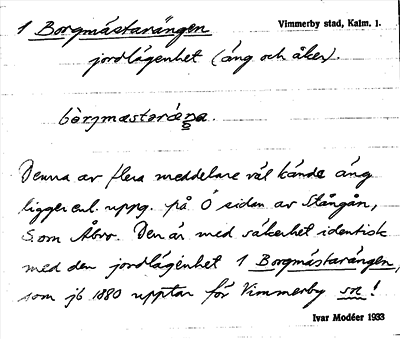 1 Borgmästarängen
Vimmerby stad, Kalm. l.
jordlägenhet (äng och åker).
bòrjmastaräŋa.
Denna av flera meddelare väl kände äng
ligger enl. uppg. på Ö sidan av Stångån,
S om Åbro. Den är med säkerhet identisk
med den jordlägenhet 1 Borgmästarängen,
som jb 1880 upptar för Vimmerby sn!
Ivar Modéer 1933